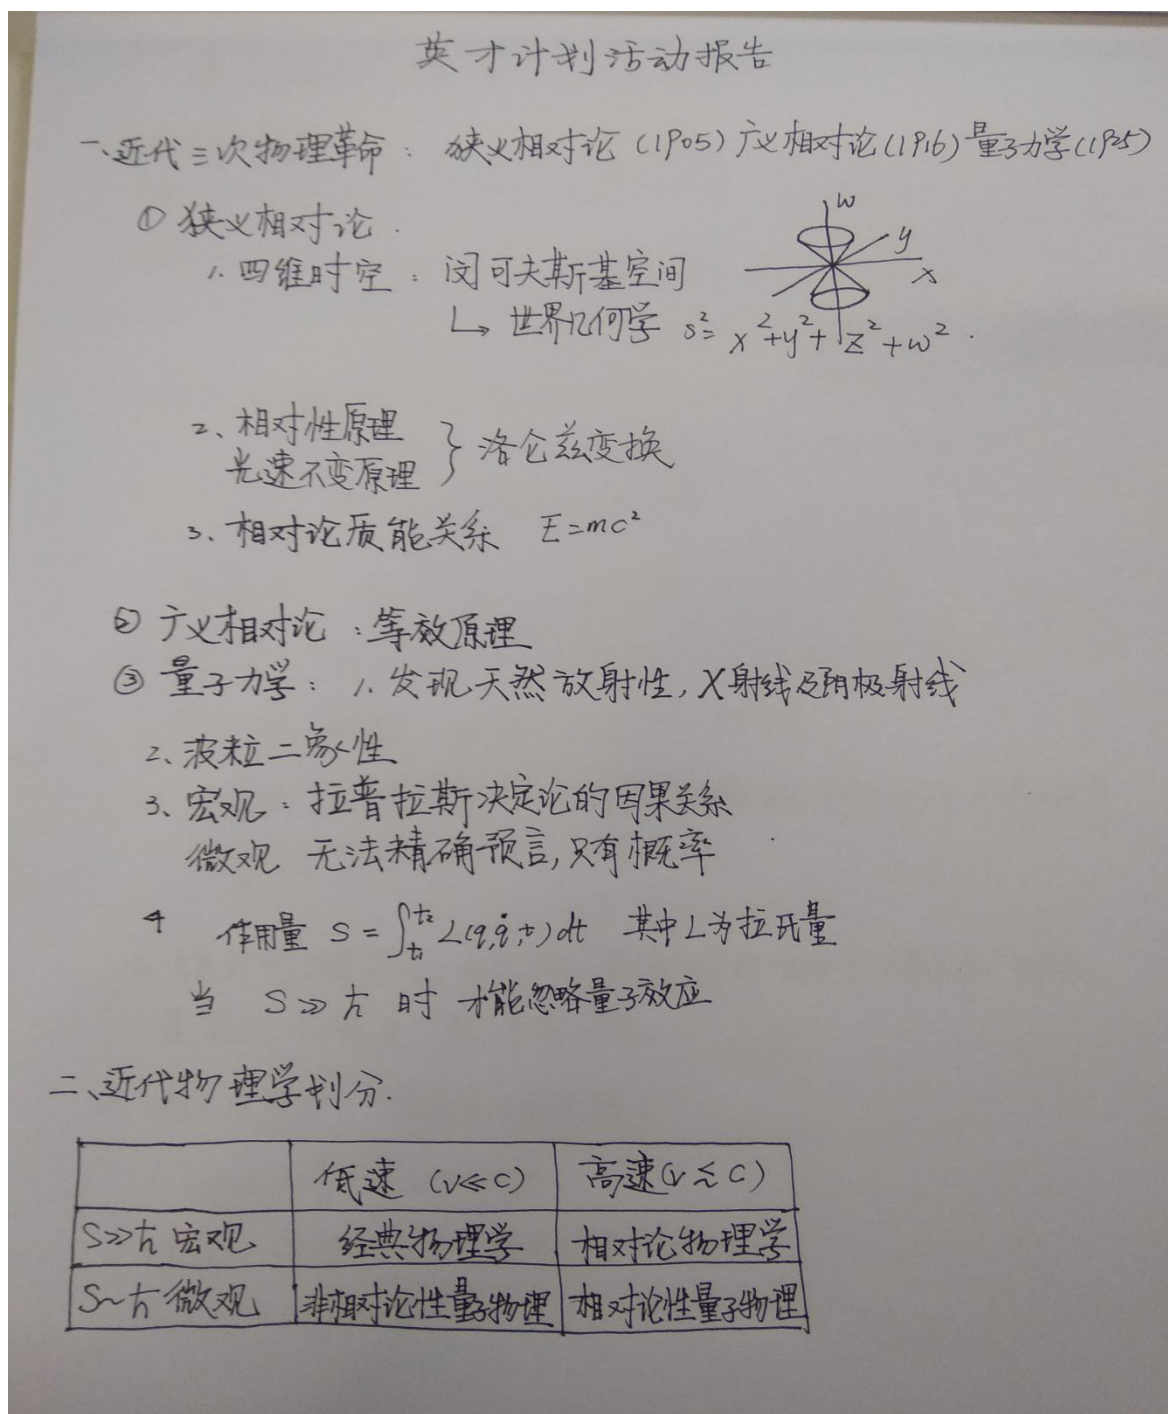 英才计划活动报告
一、近代三次物理革命： 狭义相对论（1905）广义相对论（1916）量子力学（1925）
① 狭义相对论.
w
y
x
1. 四维时空： 闵可夫斯基空间
↳ 世界几何学 s²= x²+y²+z²+w².
2、相对性原理
光速不变原理 } 洛仑兹变换
3. 相对论质能关系 E=mc²
② 广义相对论：等效原理
③ 量子力学： 1. 发现天然放射性, X射线及阴极射线
2、波粒二象性
3、宏观：拉普拉斯决定论的因果关系
微观 无法精确预言, 只有概率
4 作用量 S = ∫t₁t₂ L(q,q̇,t)dt 其中L为拉氏量
当 S≫ħ 时 才能忽略量子效应
二、近代物理学划分.
低速（v≪c） 高速（v≲c）
S≫ħ 宏观 经典物理学 相对论物理学
S~ħ 微观 非相对论性量子物理 相对论性量子物理